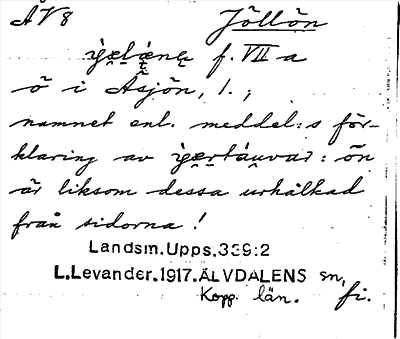 ÅV8 Jöllön
f. VII a
ö i Åsjön, 1.,
namnet enl. meddel:s för-
klaring av : ön
är liksom dessa urhålkad
från sidorna!
Landsm.Upps.339:2
L.Levander.1917.ÄLVDALENS sn,
Kopp. län. fi.